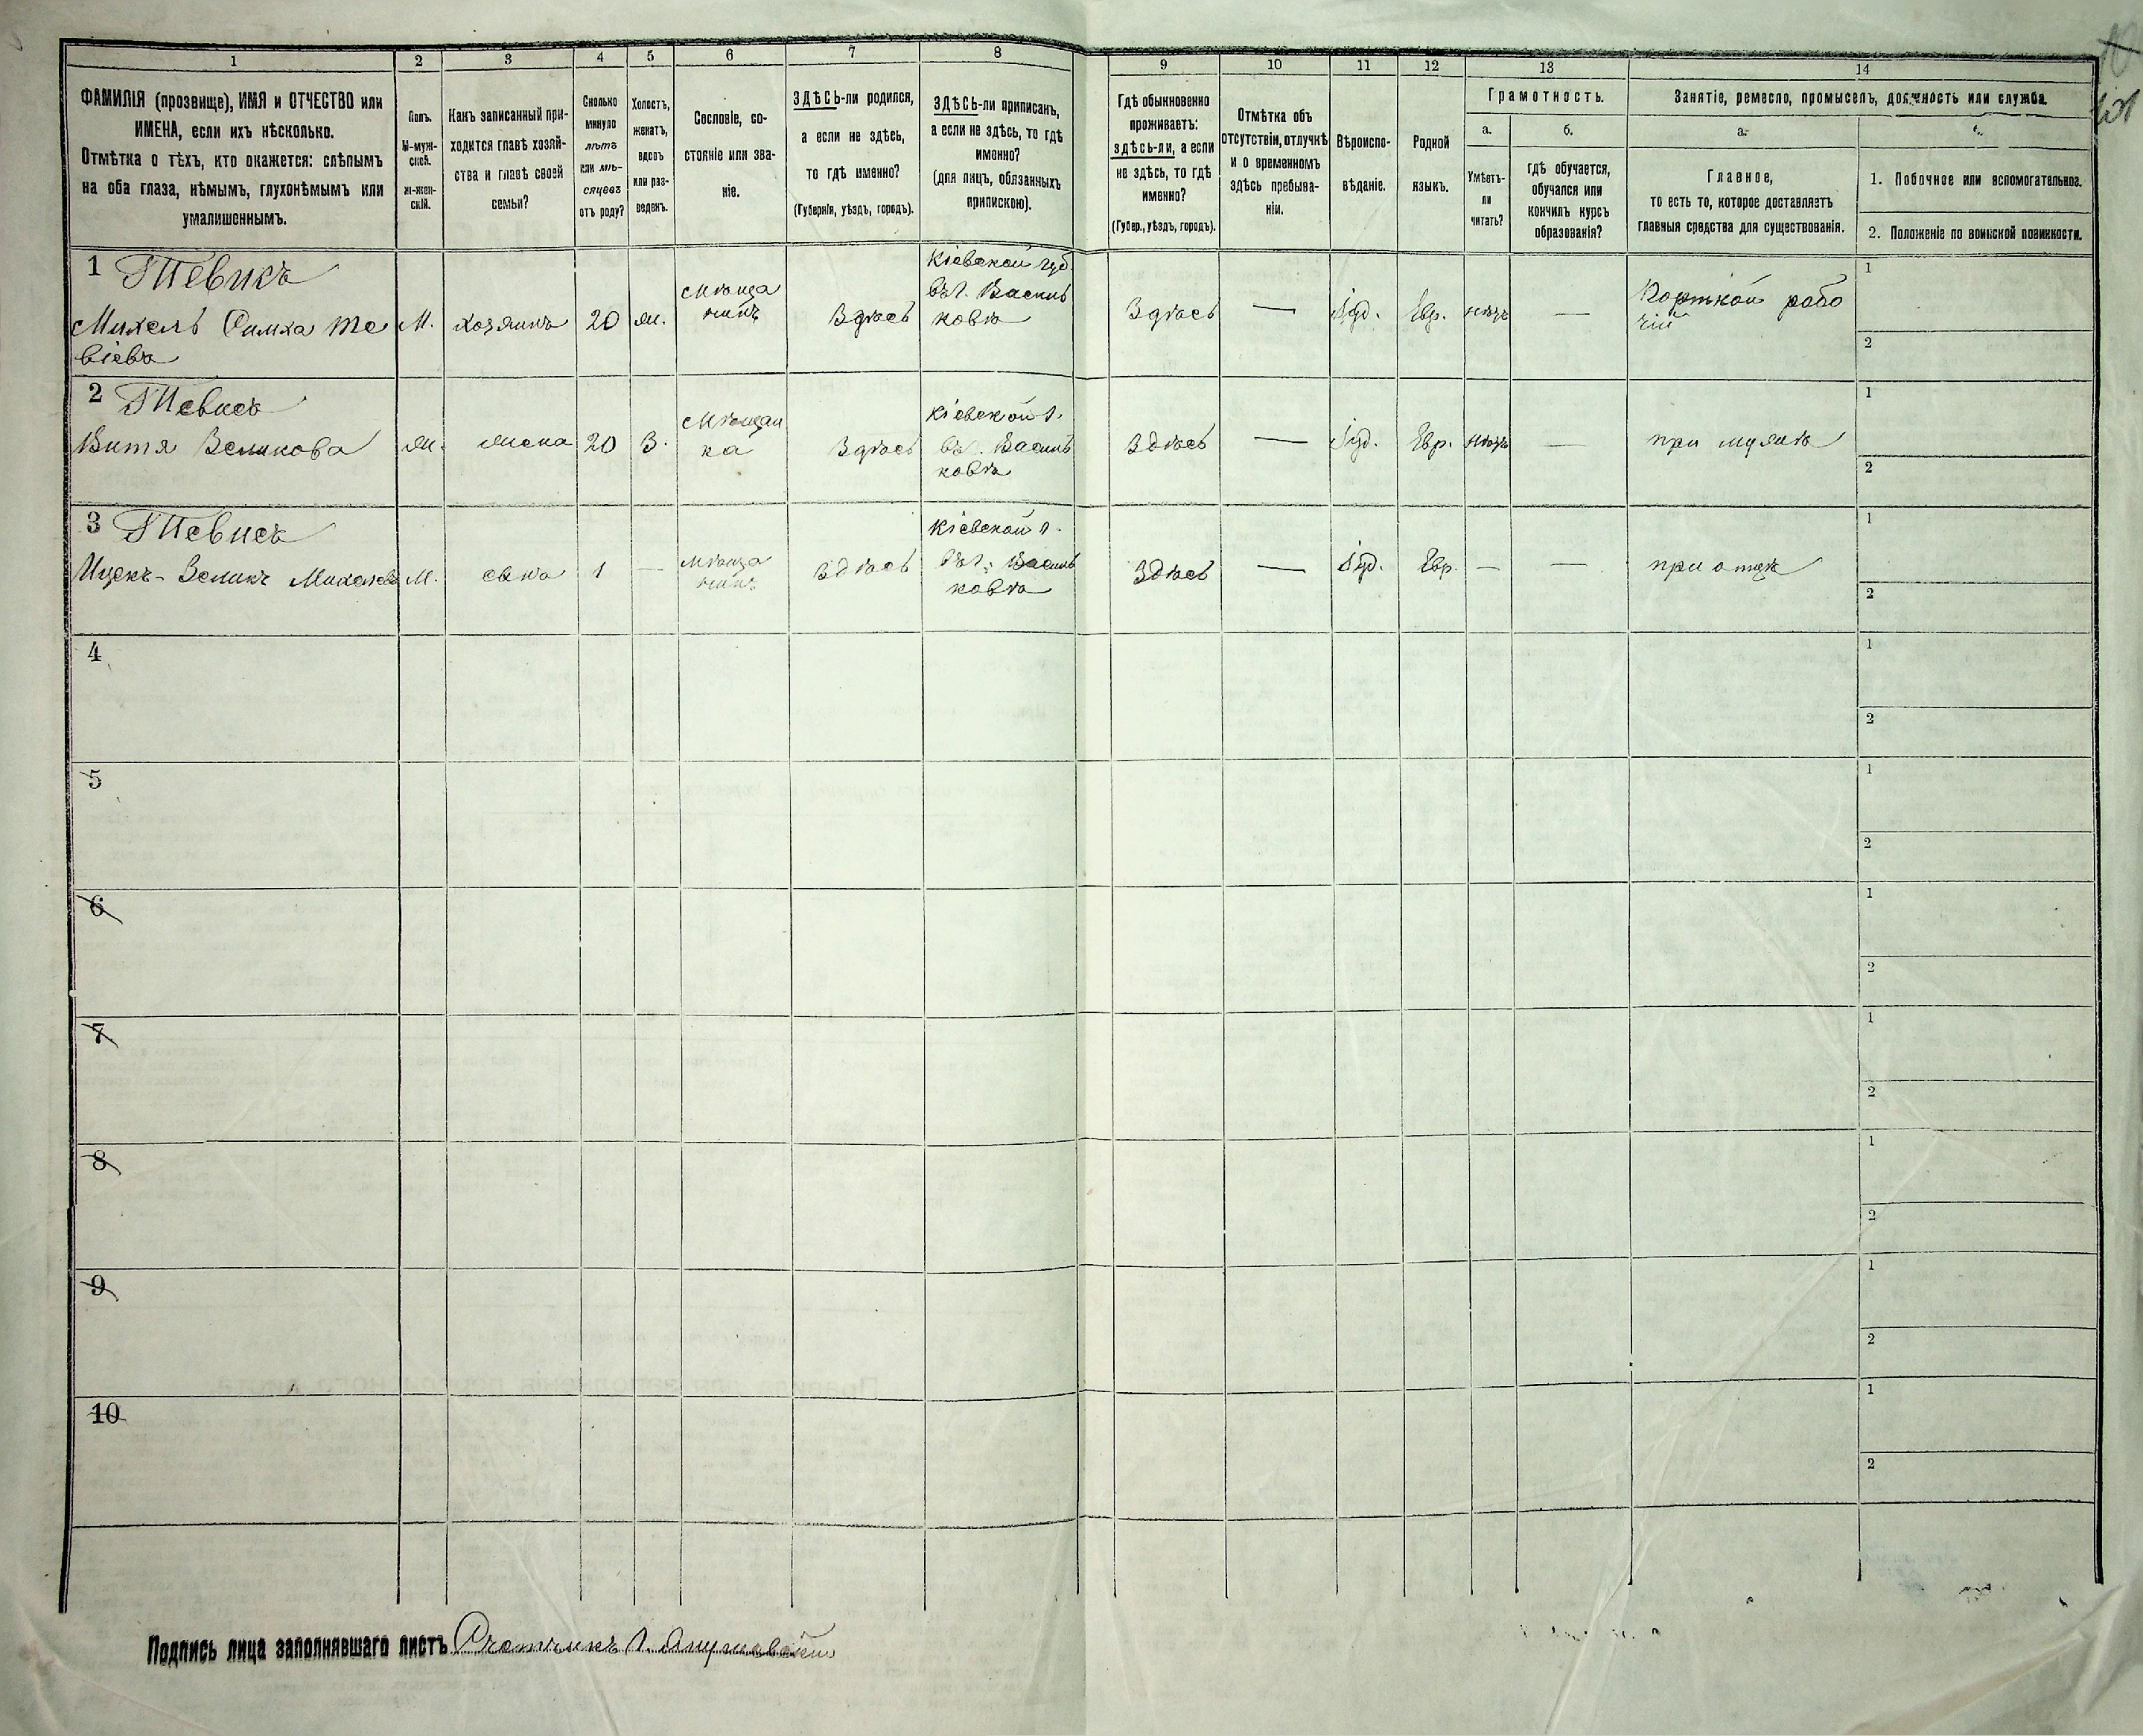 1 2 3 4 5 6 7 8 9 10 11 12 13 14
ФАМИЛІЯ (прозвище), ИМЯ и ОТЧЕСТВО или
ИМЕНА, если ихъ нѣсколько.
Отмѣтка о тѣхъ, кто окажется: слѣпымъ
на оба глаза, нѣмымъ, глухонѣмымъ или
умалишеннымъ.
Полъ.
М-муж-
ской.
ж-жен-
скій.
Какъ записанный при-
ходится главѣ хозяй-
ства и главѣ своей
семьи?
Сколько
минуло
лѣтъ
или мѣ-
сяцевъ
отъ роду?
Холостъ,
женатъ,
вдовъ
или раз-
веденъ.
Сословіе, со-
стояніе или зва-
ніе.
ЗДѢСЬ-ли родился,
а если не здѣсь,
то гдѣ именно?
(Губернія, уѣздъ, городъ).
ЗДѢСЬ-ли приписанъ,
а если не здѣсь, то гдѣ
именно?
(для лицъ, обязанныхъ
припискою).
Гдѣ обыкновенно
проживаетъ:
здѣсь-ли, а если
не здѣсь, то гдѣ
именно?
(Губер., уѣздъ, городъ).
Отмѣтка объ
отсутствіи, отлучкѣ
и о временномъ
здѣсь пребыва-
ніи.
Вѣроиспо-
вѣданіе.
Родной
языкъ.
Грамотность.
а.
Умѣетъ-
ли
читать?
б.
гдѣ обучается,
обучался или
кончилъ курсъ
образованія?
Занятіе, ремесло, промыселъ, должность или служба.
а.
Главное,
то есть то, которое доставляетъ
главныя средства для существованія.
1. Побочное или вспомогательное.
2. Положеніе по воинской повинности.
1 Тевикъ
Михель Симха Те
віевъ
М.
хозяинъ
20
ж.
мѣща
нинъ
Здѣсь
Кіевской губ.
въ г. Василь
ковѣ
Здѣсь
—
Іуд.
Евр.
нѣтъ
—
Портной рабо
чій
1
2
2 Тевикъ
Витя Зеликова
ж.
жена
20
З.
мѣщан
ка
Здѣсь
Кіевской г.
въ г. Василь
ковѣ
Здѣсь
—
Іуд.
Евр.
нѣтъ
—
при мужѣ
1
2
3 Тевикъ
Ицекъ-Зеликъ Михелевъ
М.
сынъ
1
—
мѣща
нинъ
Здѣсь
Кіевской г.
въ г. Василь
ковѣ
Здѣсь
—
Іуд.
Евр.
—
—
при отцѣ
1
2
4
1
2
5
1
2
6
1
2
7
1
2
8
1
2
9
1
2
10
1
2
Подпись лица заполнявшаго листъ Счетчикъ